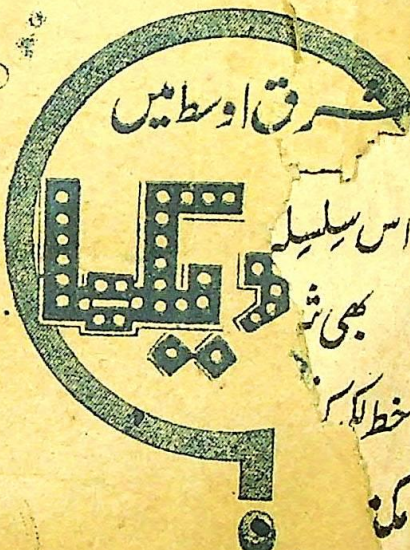 شرق اوسط میں
دیکھا
؟
اس سلسلہ
بھی
خط لکھ کر